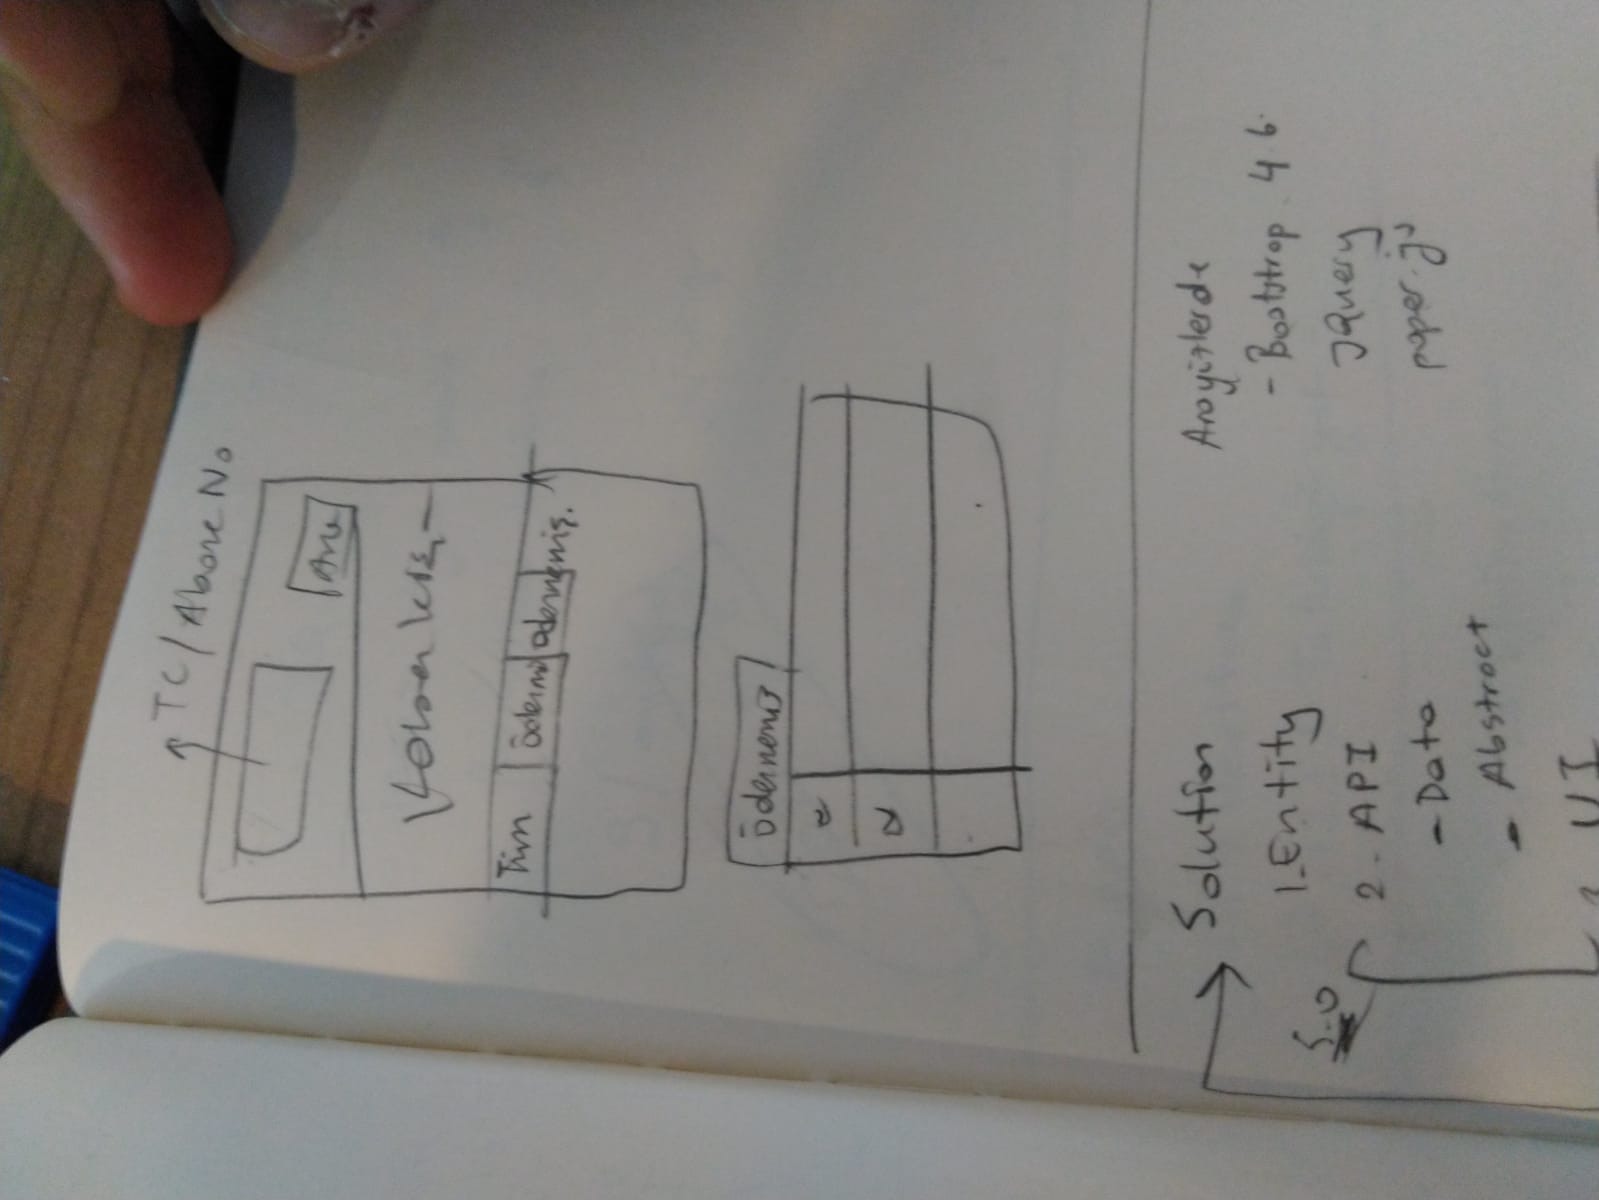 TC/Abone No
Ara
Tüm
Ödenmiş
Ödenmemiş.
Ödenmemiş
Solution
1. Entity
5.0
2. API
- Data
- Abstract
UI
Arayüzlerde
- Bootstrap 4.6
JQuery
poper.js